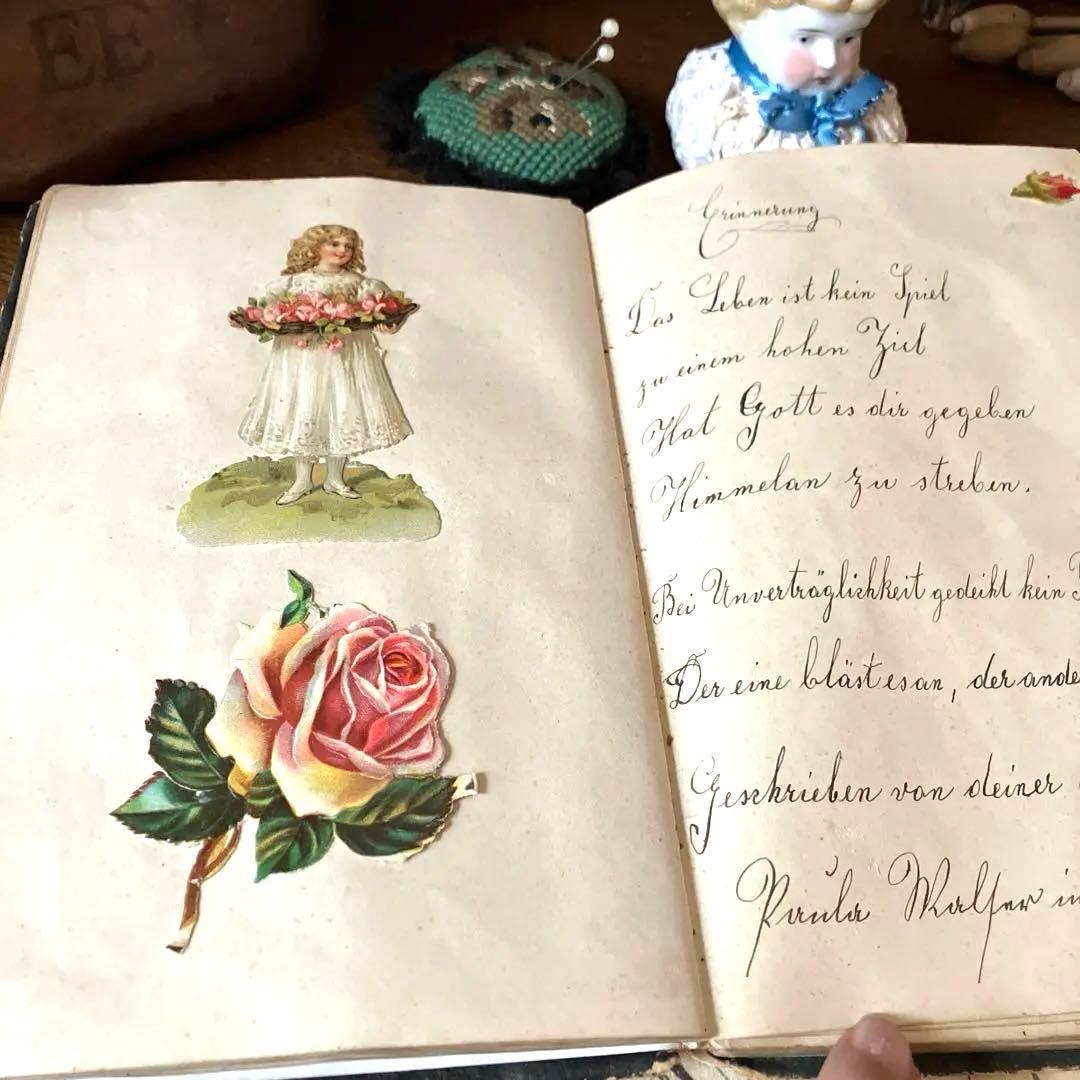 EE
Erinnerung
Das Leben ist kein Spiel
zu einem hohen Ziel
Hat Gott es dir gegeben
Himmelan zu streben.
Bei Unverträglichkeit gedeiht kein
Der eine bläst es an, der ande
Geschrieben von deiner
Paula Walser in